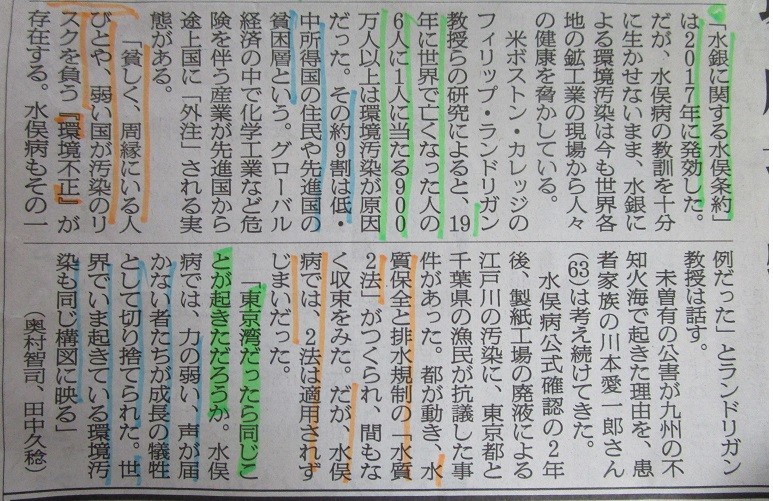 「水銀に関する水俣条約」
は2017年に発効した。
だが、水俣病の教訓を十分
に生かせないまま、水銀に
よる環境汚染は今も世界各
地の鉱工業の現場から人々
の健康を脅かしている。
米ボストン・カレッジの
フィリップ・ランドリガン
教授らの研究によると、19
年に世界で亡くなった人の
6人に1人に当たる900
万人以上は環境汚染が原因
だった。その約9割は低・
中所得国の住民や先進国の
貧困層という。グローバル
経済の中で化学工業など危
険を伴う産業が先進国から
途上国に「外注」される実
態がある。
「貧しく、周縁にいる人
びとや、弱い国が汚染のリ
スクを負う『環境不正』が
存在する。水俣病もその一
例だった」とランドリガン
教授は話す。
未曽有の公害が九州の不
知火海で起きた理由を、患
者家族の川本愛一郎さん
(63)は考え続けてきた。
水俣病公式確認の2年
後、製紙工場の廃液による
江戸川の汚染に、東京都と
千葉県の漁民が抗議した事
件があった。都が動き、水
質保全と排水規制の「水質
2法」がつくられ、間もな
く収束をみた。だが、水俣
病では、2法は適用されず
じまいだった。
「東京湾だったら同じこ
とが起きただろうか。水俣
病では、力の弱い、声が届
かない者たちが成長の犠牲
として切り捨てられた。世
界でいま起きている環境汚
染も同じ構図に映る」
(奥村智司、田中久稔)